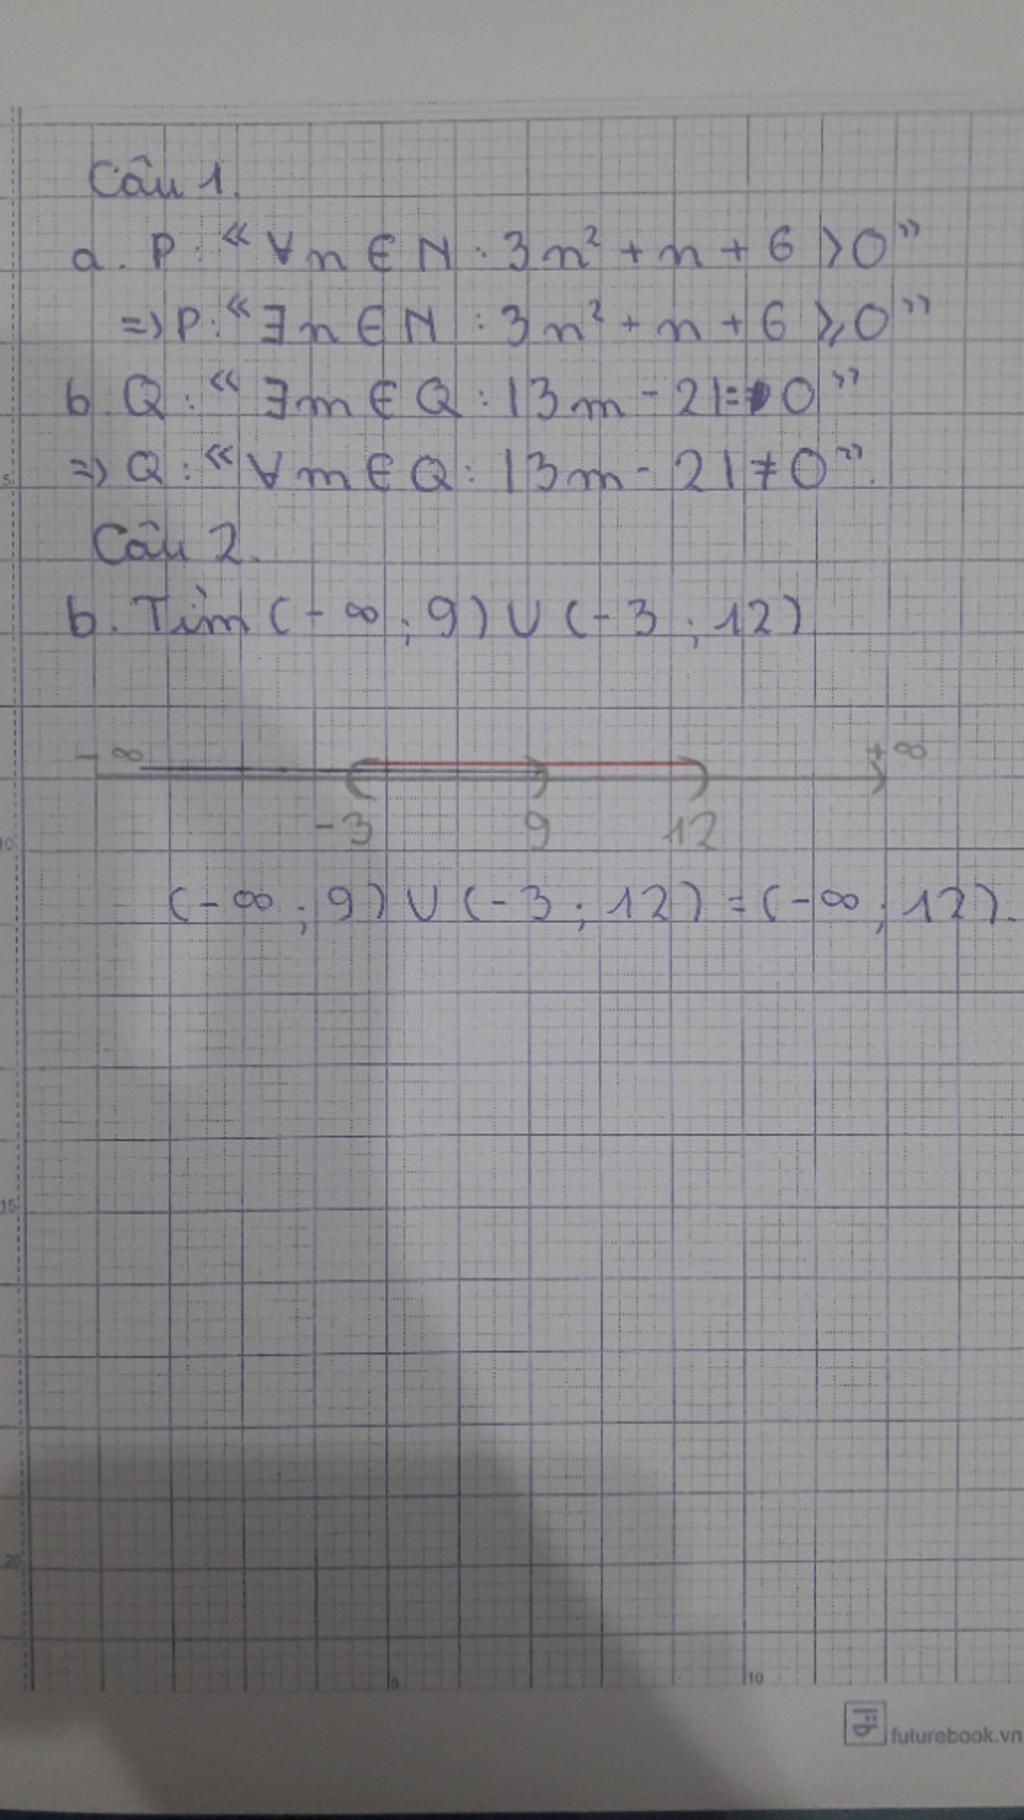 Câu 1.
a. P: “∀n ∈ N : 3n² + n + 6 > 0”
=> P: “∃n ∈ N : 3n² + n + 6 ⩾ 0”
b. Q: “∃m ∈ Q : 13m - 21 = 0”
=> Q: “∀m ∈ Q : 13m - 21 ≠ 0”.
Câu 2.
b. Tìm (-∞ ; 9) ∪ (-3 ; 12)
-∞ +∞
-3 9 12
(-∞ ; 9) ∪ (-3 ; 12) = (-∞ ; 12).
5
10
15
20
5 10
futurebook.vn